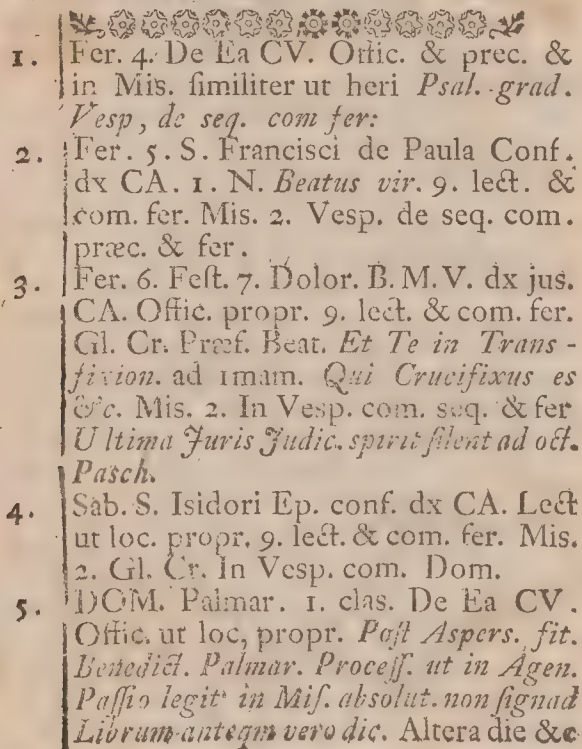 1. Fer. 4. De Ea CV. Offic. & prec. &
in Mis. ſimiliter ut heri Psal. grad.
Vesp, de seq. com fer:
2. Fer. 5. S. Francisci de Paula Conf.
dx CA. 1. N. Beatus vir. 9. lect. &
com. fer. Mis. 2. Vesp. de seq. com.
præc. & fer.
3. Fer. 6. Feſt. 7. Dolor. B. M. V. dx jus.
CA. Offic. propr. 9. lect. & com. fer.
Gl. Cr. Præf. Beat. Et Te in Trans-
fixion. ad 1mam. Qui Crucifixus es
&c. Mis. 2. In Vesp. com. seq. & fer
Ultima Juris Judic. ſilent ad oct.
Pasch.
4. Sab. S. Isidori Ep. conf. dx CA. Lect
ut loc. propr. 9. lect. & com. fer. Mis.
2. Gl. Cr. In Vesp. com. Dom.
5. DOM. Palmar. 1. clas. De Ea CV.
Offic. ut loc, propr. Poſt Aspers. fit.
Benedict. Palmar. Proceſſ. ut in Agen.
Paſſio legit' in Miſ. absolut. non ſignad
Librum anteqm vero dic. Altera die &c